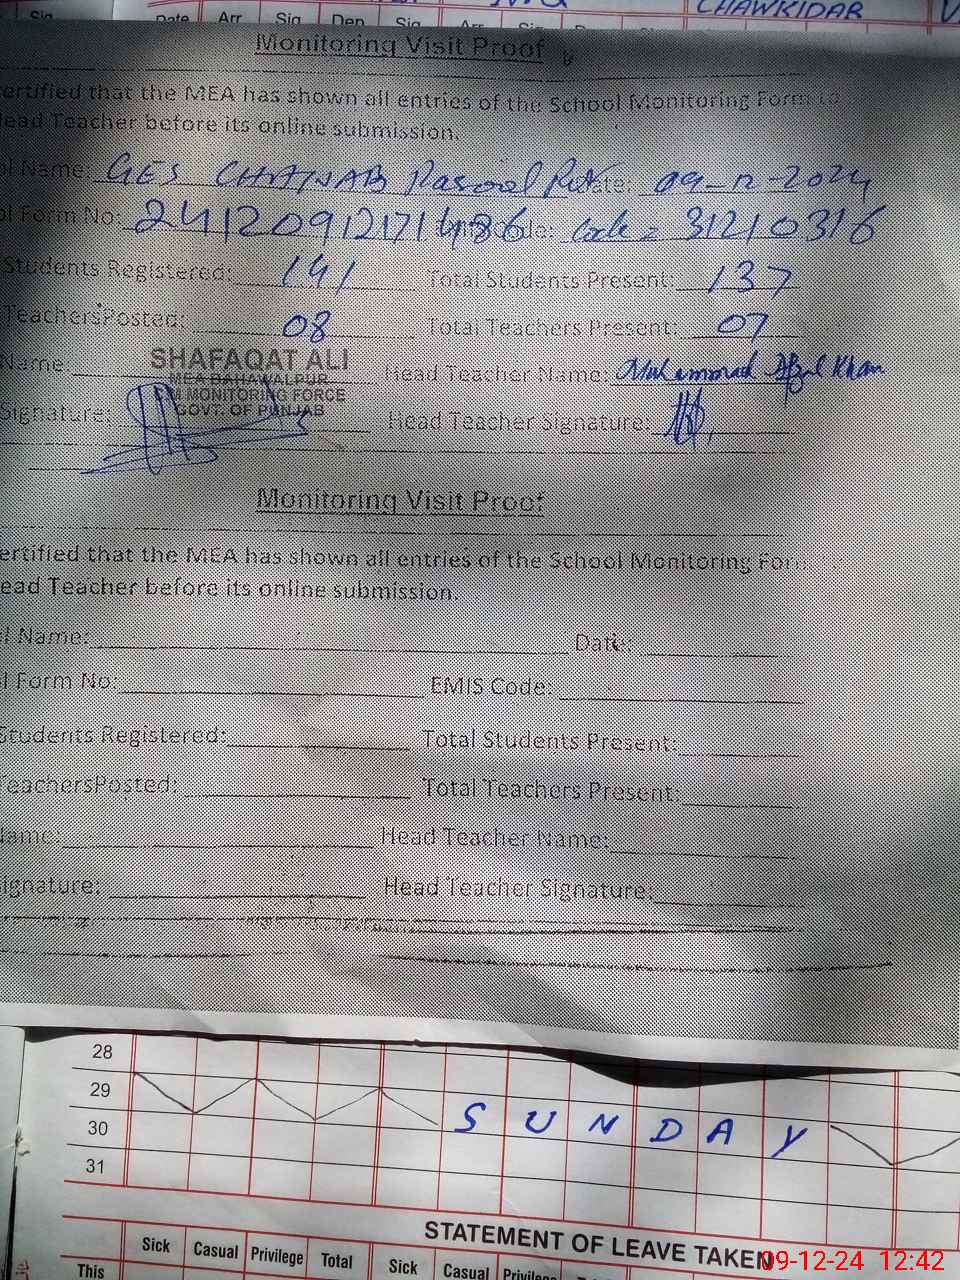 CHAWKIDAR
Date Arr Sig Dep Sig Arr
Monitoring Visit Proof
ertified that the MEA has shown all entries of the School Monitoring Form to
ead Teacher before its online submission.
ol Name: GES CHANAB Rasool Date: 09-12-2024
ol Form No: 24120912171486 Code: Code = 31210316
Students Registered: 141 Total Students Present: 137
TeachersPosted: 08 Total Teachers Present: 07
Name: SHAFAQAT ALI Head Teacher Name: Muhammad Afzal Khan
MEA BAHAWALPUR
CM MONITORING FORCE
GOVT. OF PUNJAB
Signature: Head Teacher Signature:
Monitoring Visit Proof
ertified that the MEA has shown all entries of the School Monitoring Form
ead Teacher before its online submission.
l Name: Date:
l Form No: EMIS Code:
Students Registered: Total Students Present:
TeachersPosted: Total Teachers Present:
Name: Head Teacher Name:
ignature: Head Teacher Signature:
28
29
30 SUNDAY
31
STATEMENT OF LEAVE TAKEN
Sick Casual Privilege Total Sick Casual Privilege
This
09-12-24 12:42